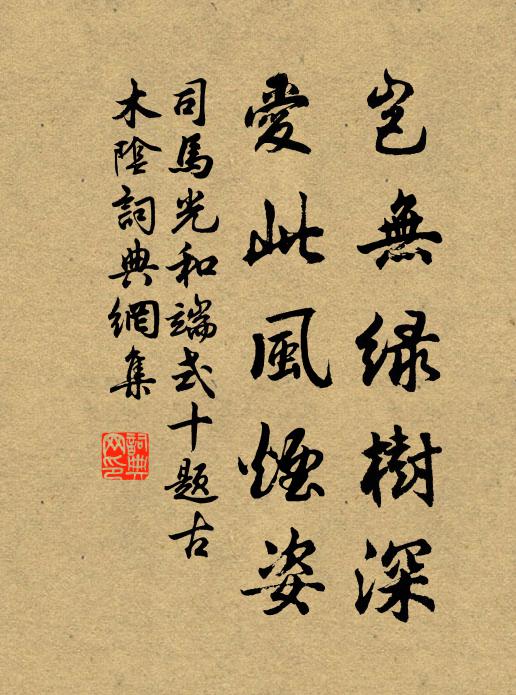 岂無緑樹深
愛此風煙姿
司馬光和端式十题古
木陰詞典網集
詞典
网印